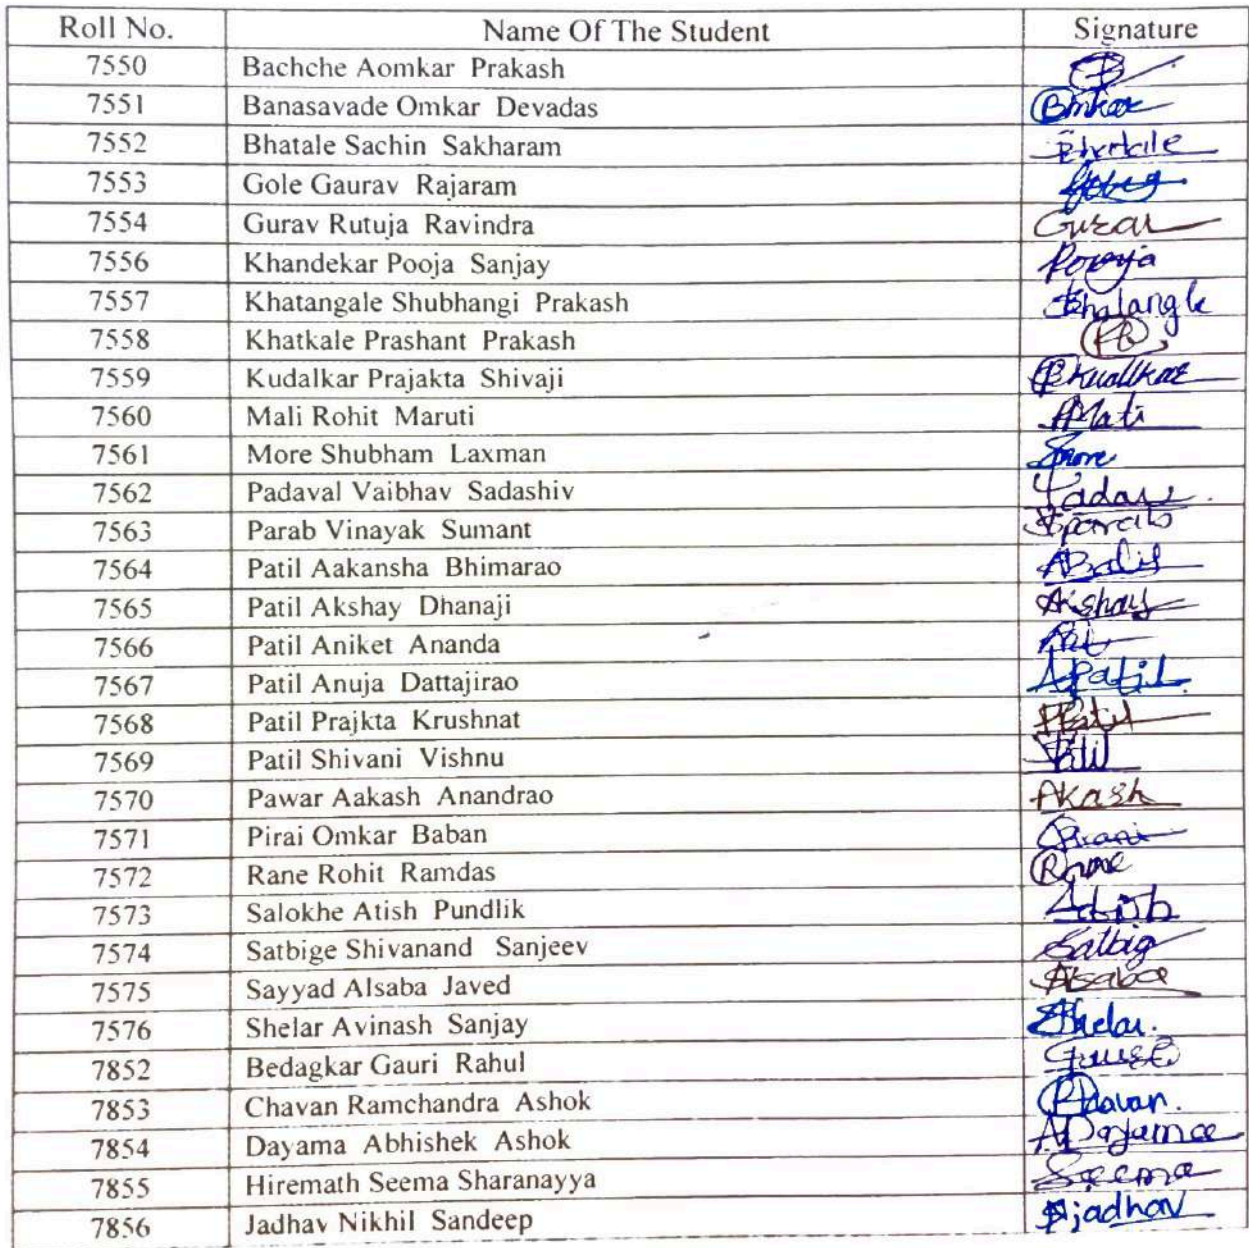 Roll No. Name Of The Student Signature
7550 Bachche Aomkar Prakash
7551 Banasavade Omkar Devadas Omkar
7552 Bhatale Sachin Sakharam
7553 Gole Gaurav Rajaram
7554 Gurav Rutuja Ravindra Gurav
7556 Khandekar Pooja Sanjay Pooja
7557 Khatangale Shubhangi Prakash
7558 Khatkale Prashant Prakash
7559 Kudalkar Prajakta Shivaji
7560 Mali Rohit Maruti
7561 More Shubham Laxman
7562 Padaval Vaibhav Sadashiv
7563 Parab Vinayak Sumant
7564 Patil Aakansha Bhimarao
7565 Patil Akshay Dhanaji Akshay
7566 Patil Aniket Ananda
7567 Patil Anuja Dattajirao APatil
7568 Patil Prajkta Krushnat
7569 Patil Shivani Vishnu Patil
7570 Pawar Aakash Anandrao Akash
7571 Pirai Omkar Baban
7572 Rane Rohit Ramdas Rane
7573 Salokhe Atish Pundlik
7574 Satbige Shivanand Sanjeev
7575 Sayyad Alsaba Javed Alsaba
7576 Shelar Avinash Sanjay Shelar.
7852 Bedagkar Gauri Rahul
7853 Chavan Ramchandra Ashok
7854 Dayama Abhishek Ashok ADayama
7855 Hiremath Seema Sharanayya Seema
7856 Jadhav Nikhil Sandeep Njadhav